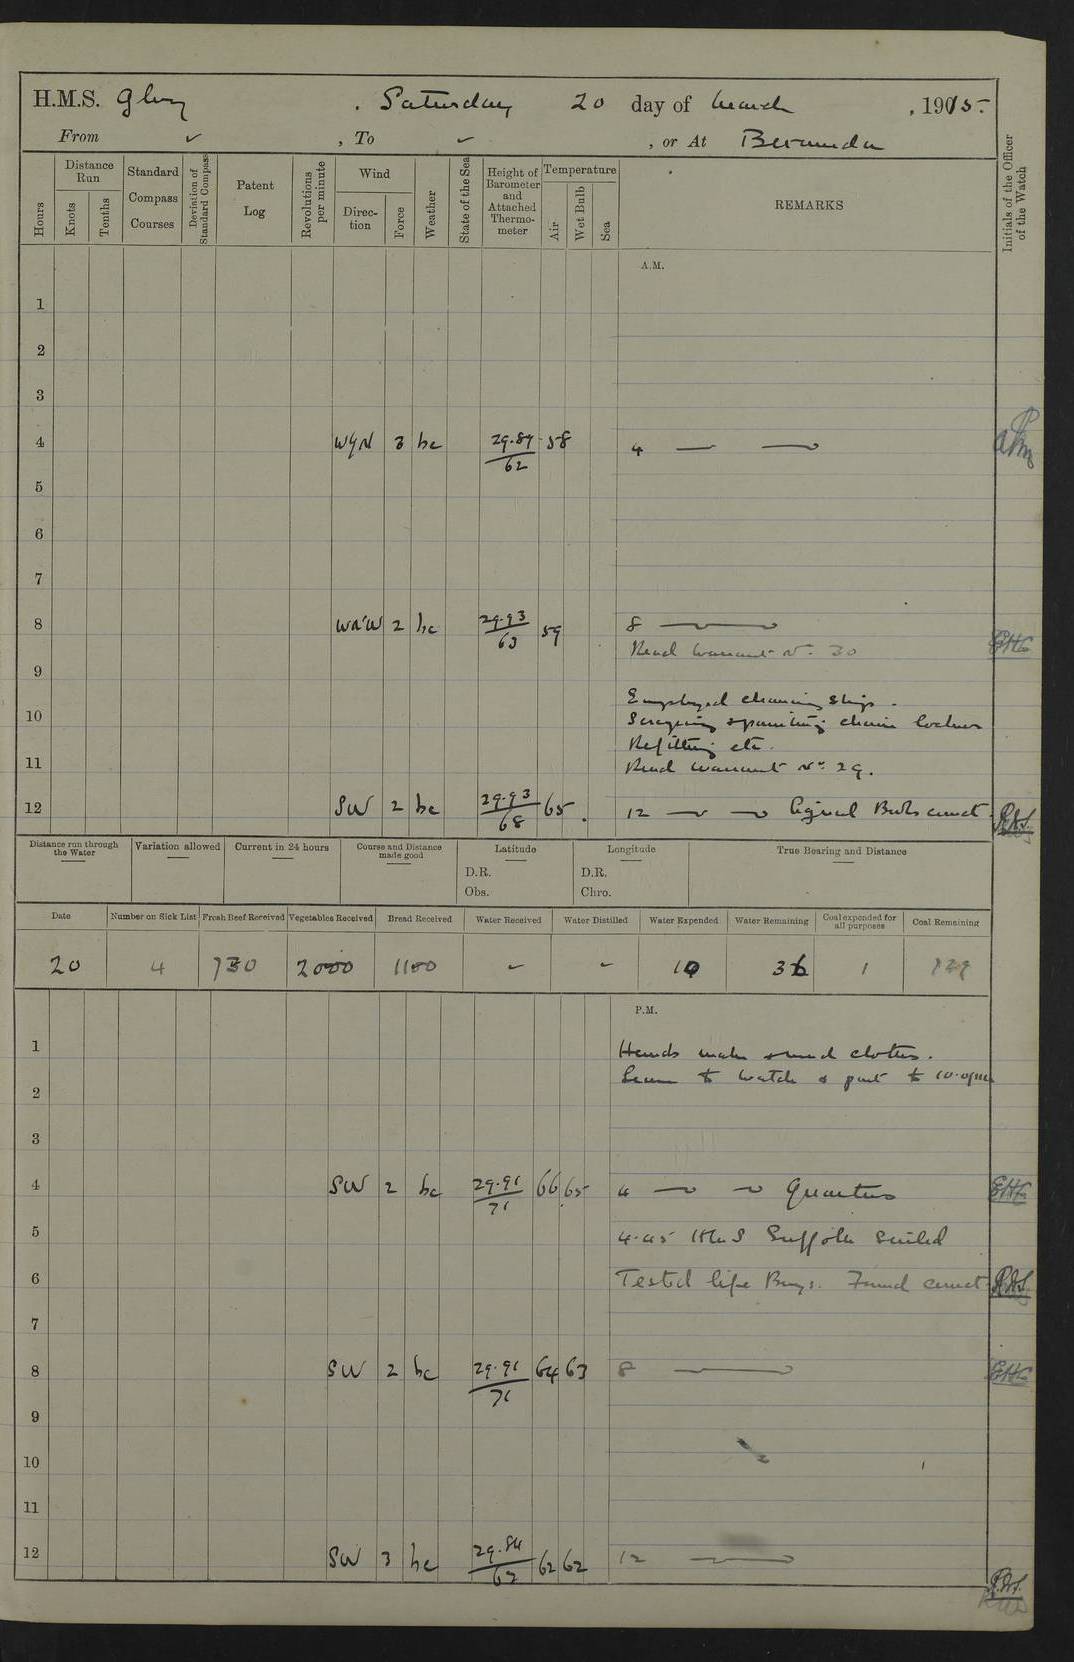 H.M.S. Glory , Saturday 20 day of March , 1915.
From ✓ , To ✓ , or At Bermuda
Hours
Distance Run
Knots
Tenths
Standard Compass Courses
Deviation of Standard Compass
Patent Log
Revolutions per minute
Wind
Direction
Force
Weather
State of the Sea
Height of Barometer and Attached Thermometer
Temperature
Air
Wet Bulb
Sea
REMARKS
Initials of the Officer of the Watch
A.M.
1
2
3
4 WbyN 3 bc 29.89/62 58 4
5
6
7
8 WNW 2 bc 29.93/63 59 8
Read Warrant No. 30
9
Employed cleaning ship.
10 Scraping & painting chain lockers
Refitting etc.
11 Read Warrant No. 29.
12 SW 2 bc 29.93/68 65 12 Signal Books correct
Distance run through the Water
Variation allowed
Current in 24 hours
Course and Distance made good
Latitude
D.R.
Obs.
Longitude
D.R.
Chro.
True Bearing and Distance
Date Number on Sick List Fresh Beef Received Vegetables Received Bread Received Water Received Water Distilled Water Expended Water Remaining Coal expended for all purposes Coal Remaining
20 4 730 2000 1100 - - 10 36 1
P.M.
1 Hands make & mend clothes.
Leave to Watch & part to 10.0pm
2
3
4 SW 2 bc 29.91/71 66 65 4 Quarters
5 4.45 HMS Suffolk sailed
6 Tested life Buoys. Found correct
7
8 SW 2 bc 29.91/71 64 63 8
9
10
11
12 SW 3 bc 29.84/67 62 62 12